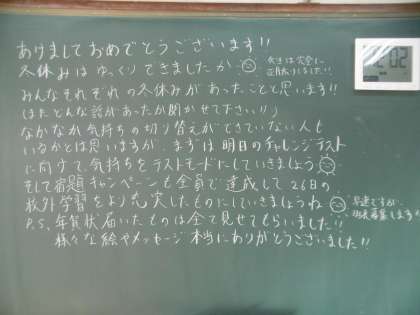 あけましておめでとうございます!!
冬休みはゆっくりできましたか
先生は完全に
正月太りしました!!
みんなそれぞれの冬休みがあったことと思います!!
(またどんな話があったか聞かせて下さい!!)
なかなか気持ちの切り替えができていない人も
いるかとは思いますが、まずは明日のチャレンジテスト
に向けて気持ちをテストモードにしていきましょう
そして宿題キャンペーンも全員で達成して26日の
校外学習をより充実したものにしていきましょうね
早速ですが、
班長募集します!!
P.S. 年賀状届いたものは全て見せてもらいました!!
様々な絵やメッセージ本当にありがとうございました!!